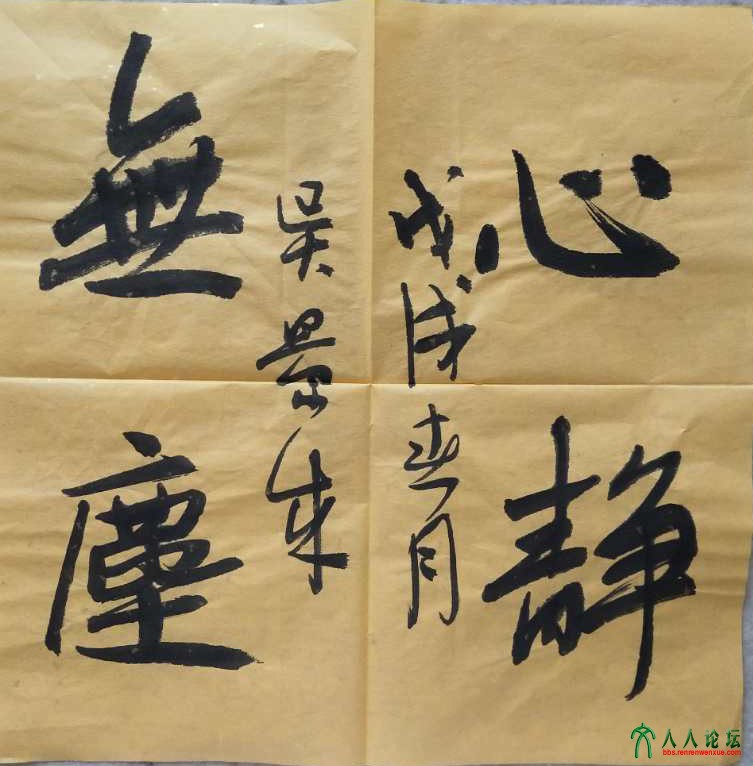 心静
戊戌春月
吴景
無塵
人人论坛
bbs.renrenwenxue.com